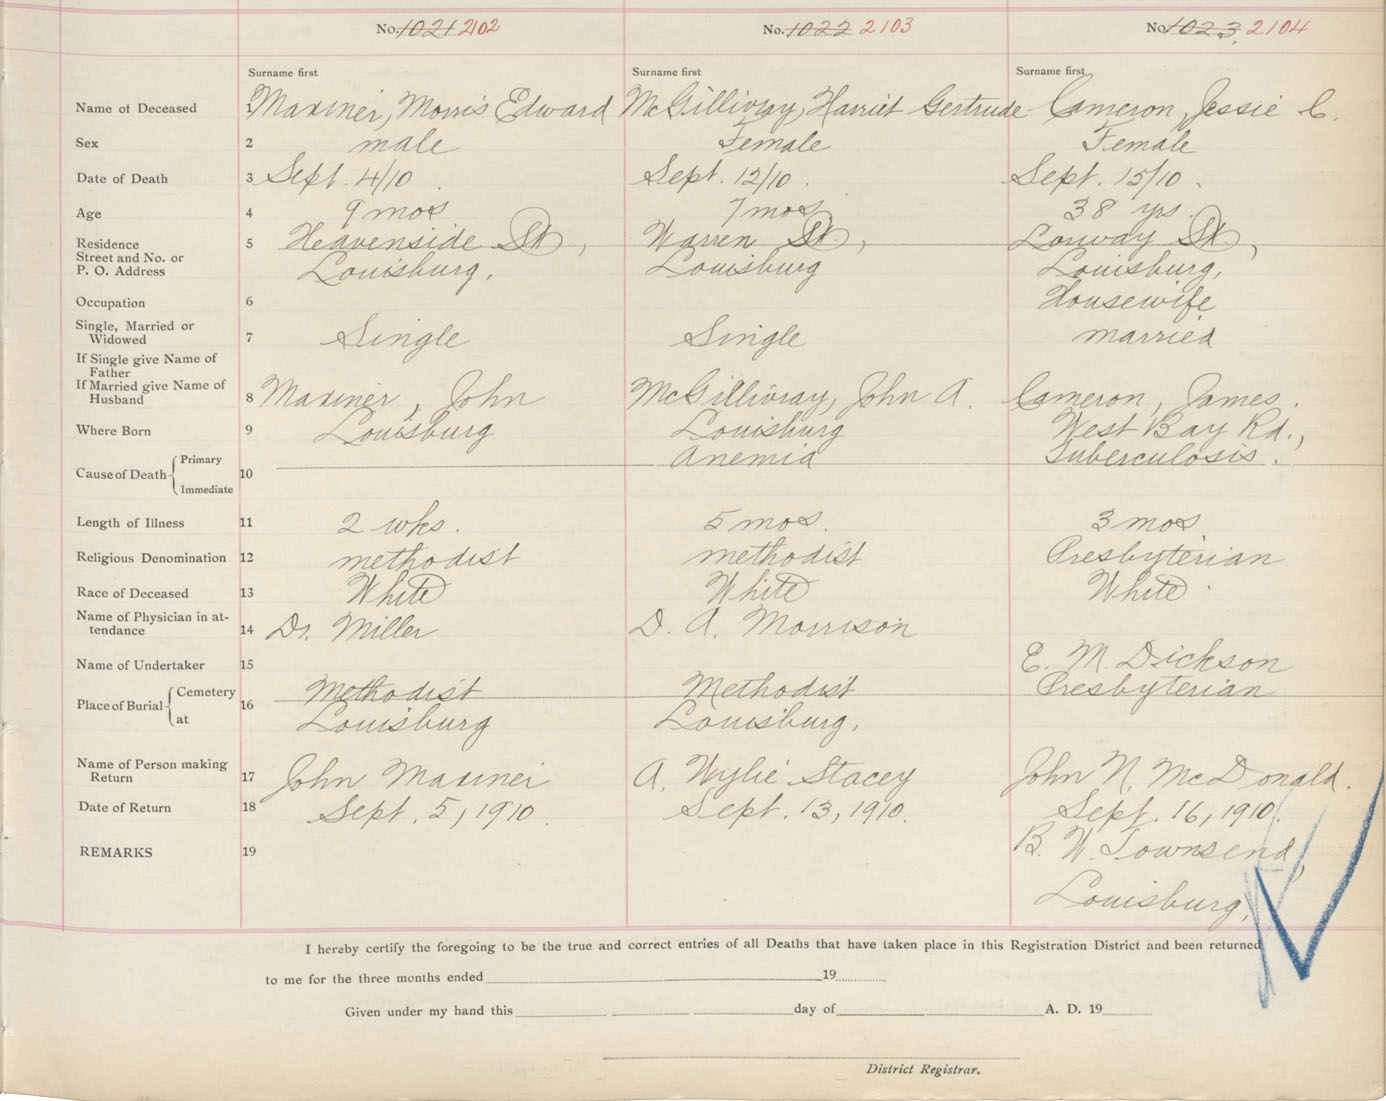 No. 1021 2102 No. 1022 2103 No. 1023 2104
Surname first Surname first Surname first
Name of Deceased 1 Mariner, Morris Edward McGillivray, Harriet Gertrude Cameron, Jessie C.
Sex 2 male Female Female
Date of Death 3 Sept. 4/10. Sept. 12/10. Sept. 15/10.
Age 4 9 mos 7 mos 38 yrs.
Residence 5 Heavenside St., Warren St., Lorway St.,
Street and No. or
P. O. Address Louisburg, Louisburg Louisburg,
Occupation 6 Housewife
Single, Married or
Widowed 7 Single Single married
If Single give Name of
Father
If Married give Name of
Husband 8 Mariner, John McGillivray, John A. Cameron, James.
Where Born 9 Louisburg Louisburg West Bay Rd.,
Cause of Death Primary 10 Anemia Tuberculosis.
Immediate
Length of Illness 11 2 wks. 5 mos. 3 mos
Religious Denomination 12 methodist methodist Presbyterian
Race of Deceased 13 White White White
Name of Physician in at-
tendance 14 Dr. Miller D. A. Morrison
Name of Undertaker 15 E. M. Dickson
Place of Burial Cemetery 16 Methodist Methodist Presbyterian
at Louisburg Louisburg,
Name of Person making
Return 17 John Mariner A. Wylie Stacey John N. McDonald.
Date of Return 18 Sept. 5, 1910. Sept. 13, 1910. Sept. 16, 1910.
REMARKS 19 B. W. Townsend,
Louisburg,
I hereby certify the foregoing to be the true and correct entries of all Deaths that have taken place in this Registration District and been returned
to me for the three months ended 19
Given under my hand this day of A. D. 19
District Registrar.